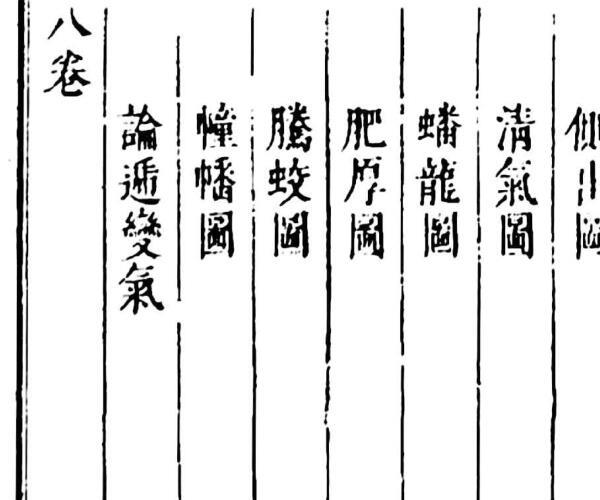 清氣圖
蟠龍圖
肥厚圖
騰蛟圖
幢幡圖
論遁變氣
八卷